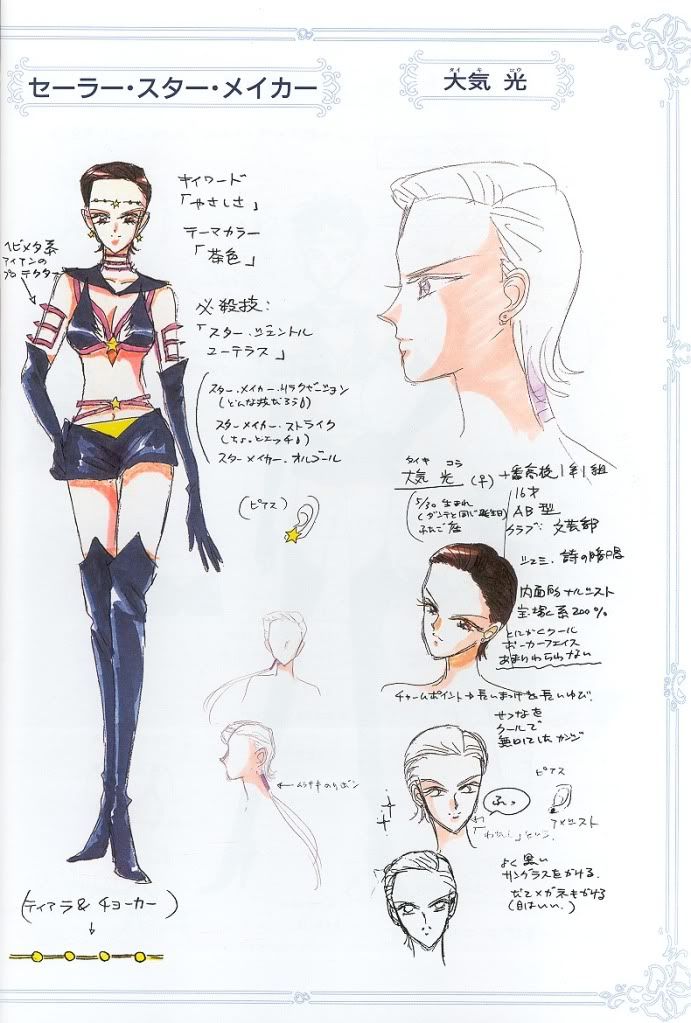 セーラー・スター・メイカー
タイ キ コウ
大気 光
キイワード
「やさしさ」
テーマカラー
「茶色」
ヘビメタ系
アイアンの
プロテクター
必殺技:
「スター・ジェントル
ユーテラス」
スター・メイカー・リラクゼーション
(どんな技だろう)
スターメイカー・ストライク
(ちょっとエッチ)
スターメイカー・オルゴール
(ピアス)
タイキ コウ
大気 光 (♀)
十番高校1年1組
16才
AB型
クラブ: 文芸部
5/30 生まれ
(ダンテと同じ誕生日)
ふたご座
シュミ、詩の暗
内面的ナルシスト
宝塚系200%
とにかくクール
ポーカーフェイス
あまりわらわない
チャームポイント→長いまつげ&長いゆび。
せつなを
クールで
無口にしたカンジ
ピアス
アメジスト
ふっ
「わたし」という。
ムラサキのリボン
よく黒い
サングラスをかける。
だてメガネもかける
(目はいい。)
(ティアラ& チョーカー)